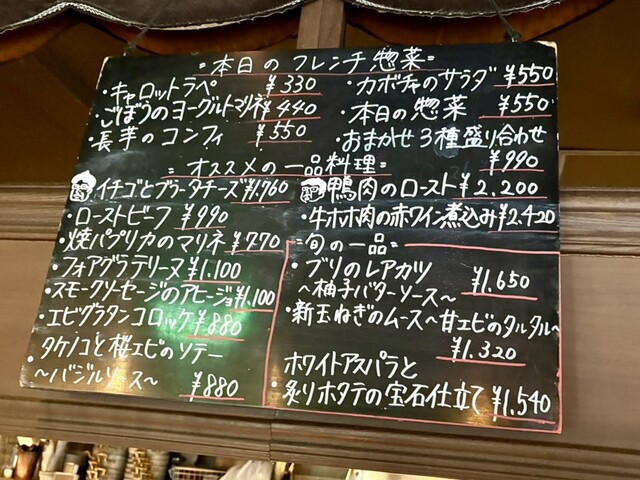 = 本日のフレンチ惣菜 =
・キャロットラペ ¥330
・ごぼうのヨーグルトマリネ ¥440
・長芋のコンフィ ¥550
・カボチャのサラダ ¥550
・本日の惣菜 ¥550
・おまかせ3種盛り合わせ
¥990
= オススメの一品料理 =
イチゴとブラータチーズ ¥1,760
・ローストビーフ ¥990
・焼パプリカのマリネ ¥770
・フォアグラテリーヌ ¥1,100
・スモークソーセージのアヒージョ ¥1,100
・エビグラタンコロッケ ¥880
・タケノコと桜エビのソテー
〜バジルソース〜 ¥880
鴨肉のロースト ¥2,200
・牛ホホ肉の赤ワイン煮込み ¥2,420
= 旬の一品 =
・ブリのレアカツ
〜柚子バターソース〜 ¥1,650
・新玉ねぎのムース〜甘エビのタルタル〜
¥1,320
ホワイトアスパラと
・炙りホタテの宝石仕立て ¥1,540